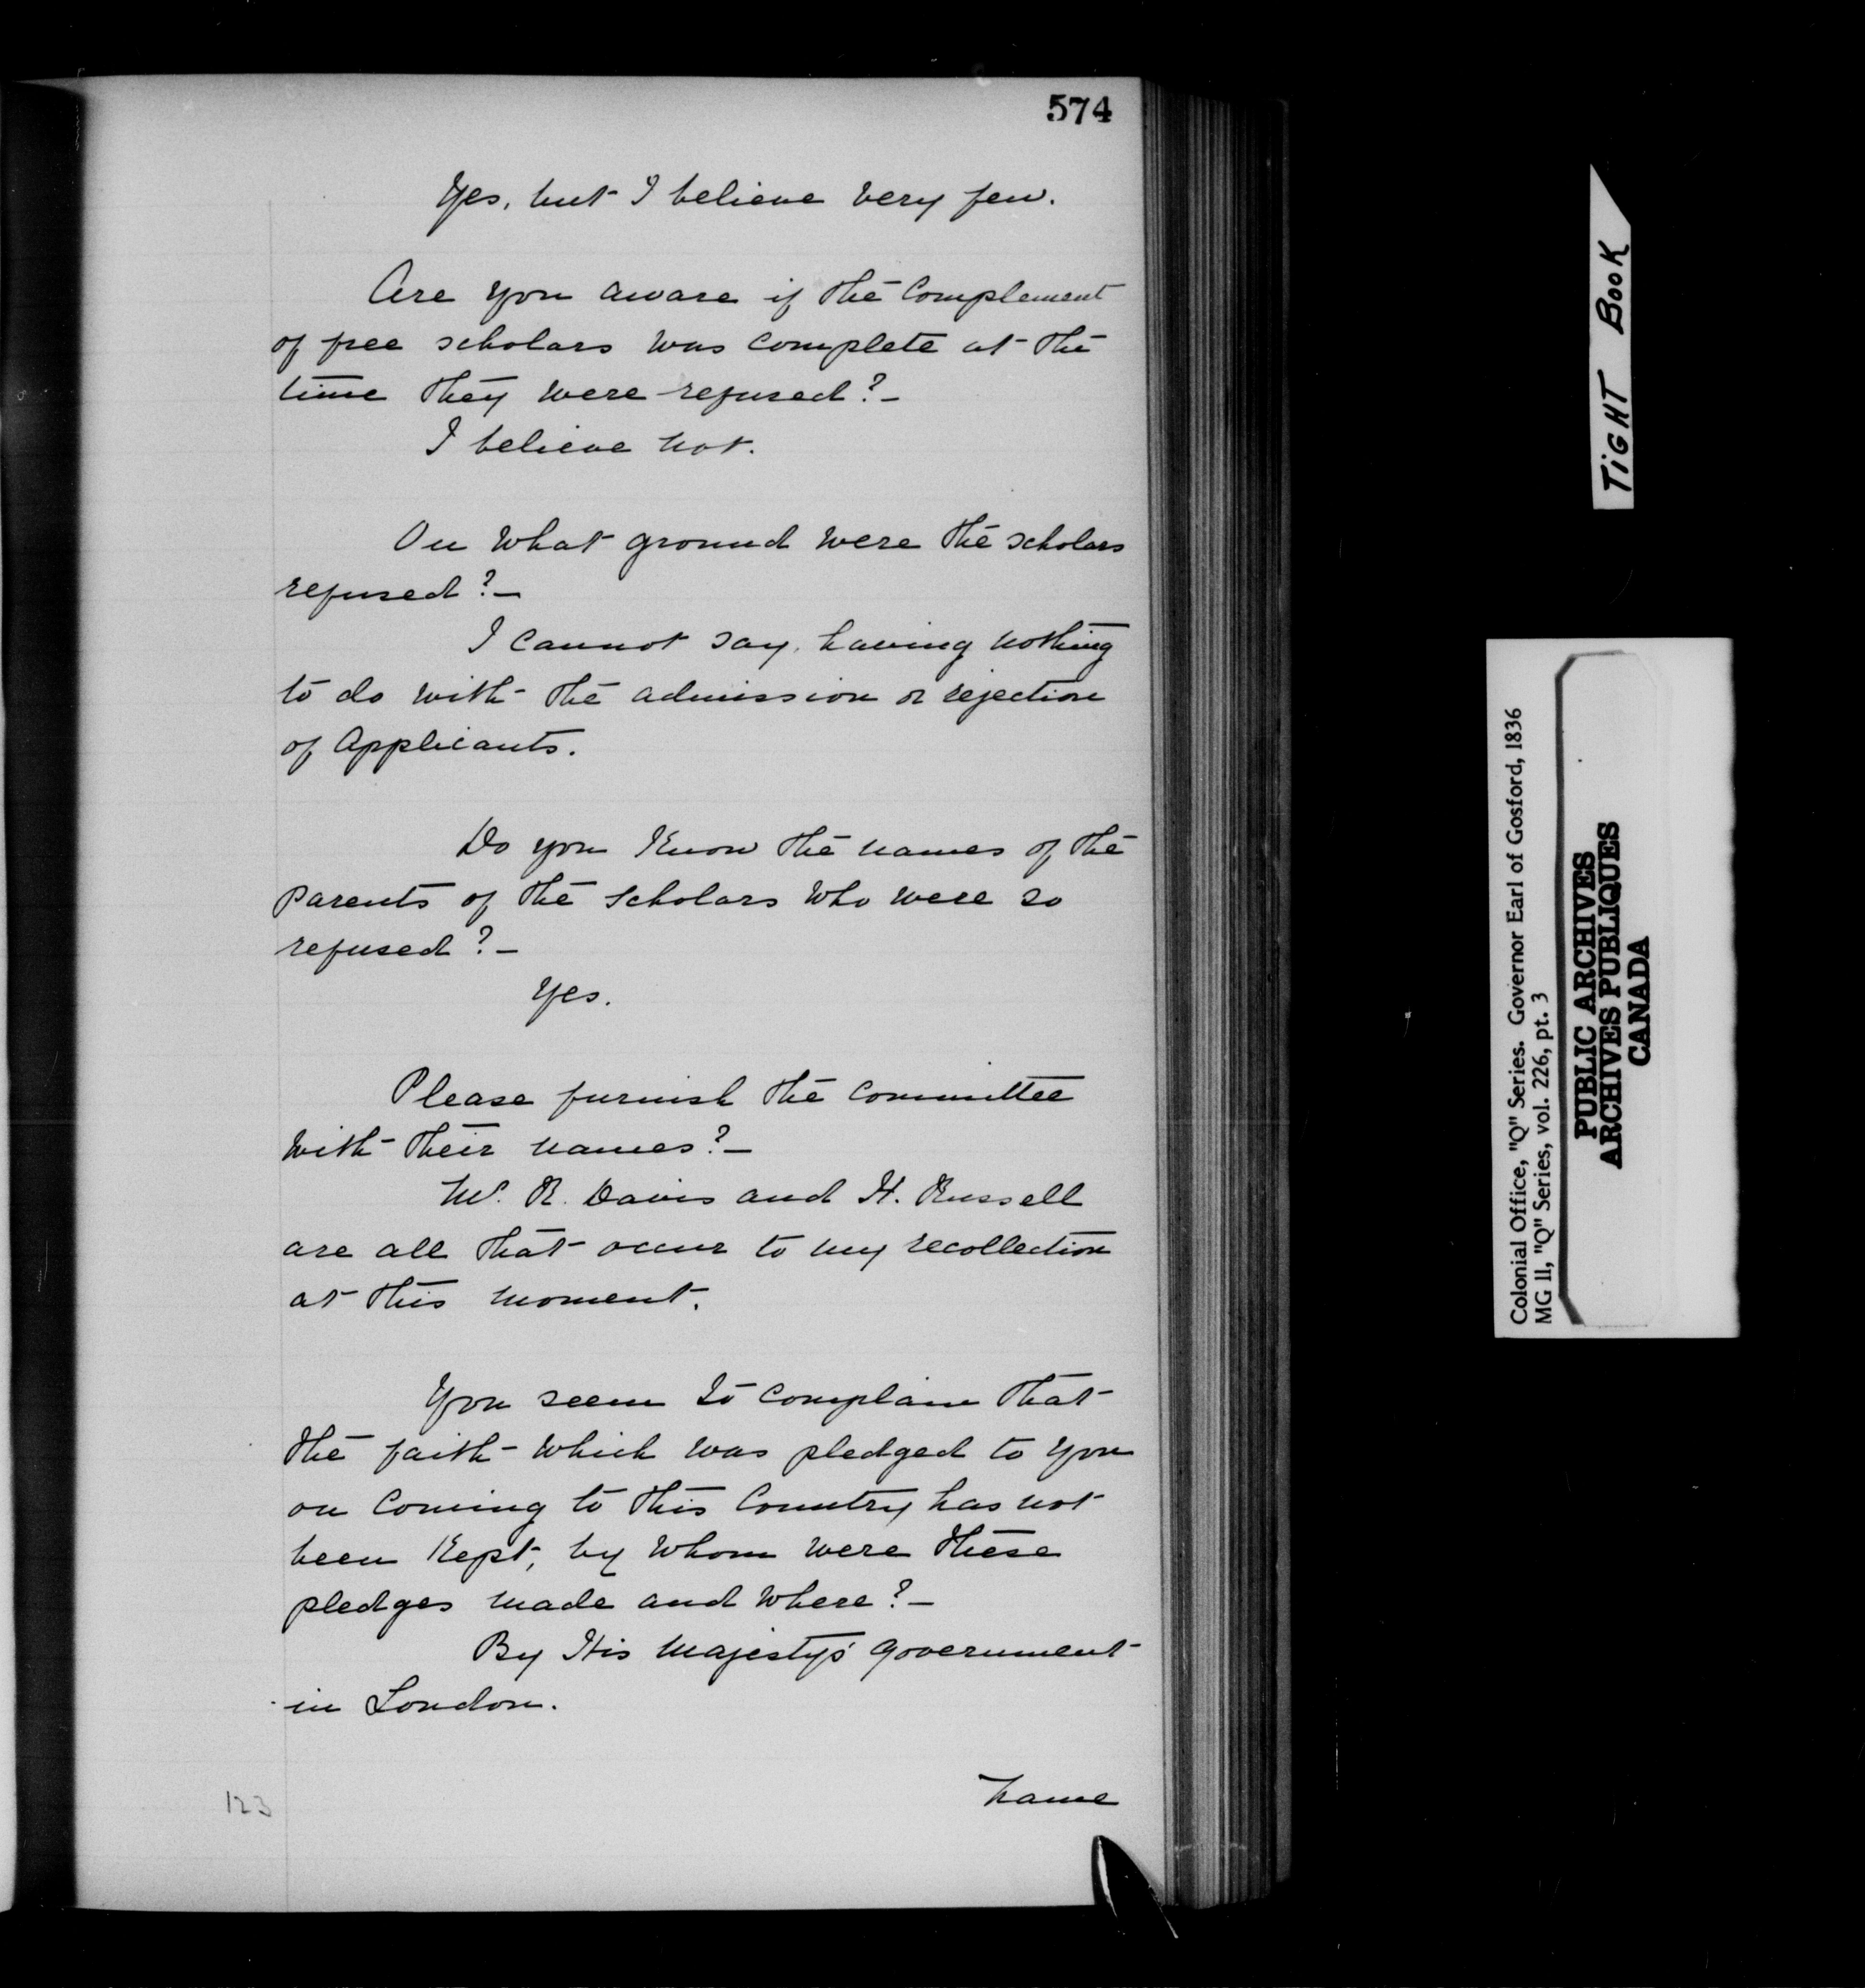 574
Yes, but I believe very few.
Are you aware if the Complement
of free scholars was complete at the
time they were refused?–
I believe not.
On what ground were the scholars
refused?–
I cannot say, having nothing
to do with the admission or rejection
of Applicants.
Do you Know the names of the
parents of the scholars who were so
refused?–
Yes.
Please furnish the Committee
with their names?–
Mr. R. Davis and H. Russell
are all that occur to my recollection
at this moment.
You seem to complain that
the faith which was pledged to you
on Coming to this Country has not
been Kept, by whom were these
pledges made and where?–
By His Majesty's Government
in London.
Name
123
TiGHT BOOK
Colonial Office, "Q" Series. Governor Earl of Gosford, 1836
MG 11, "Q" Series, vol. 226, pt. 3
PUBLIC ARCHIVES
ARCHIVES PUBLIQUES
CANADA